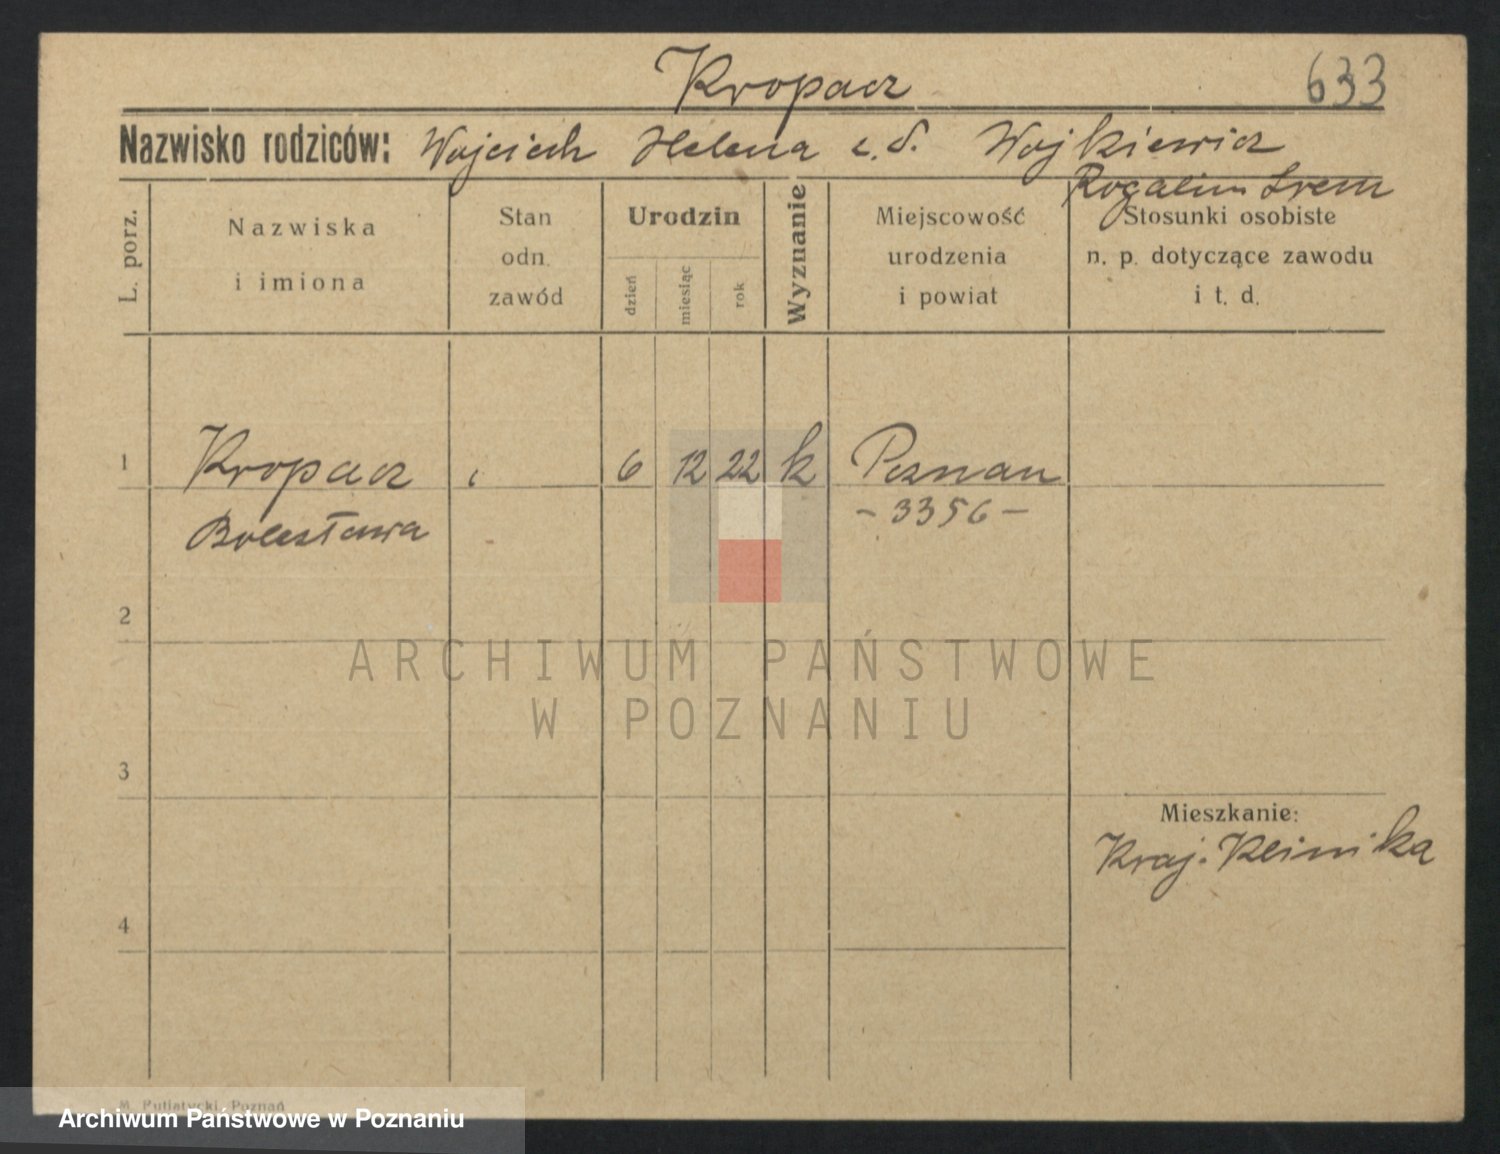 Kropacz
633
Nazwisko rodziców: Wojciech Helena z.d. Wojkiewicz
Rogalin Śrem
L. porz.
Nazwiska
i imiona
Stan
odn.
zawód
Urodzin
dzień
miesiąc
rok
Wyznanie
Miejscowość
urodzenia
i powiat
Stosunki osobiste
n. p. dotyczące zawodu
i t. d.
1 Kropacz 6 12 22 k Poznan
Bolesława - 3356 -
2
ARCHIWUM PAŃSTWOWE
W POZNANIU
3
Mieszkanie:
Kraj. Klinika
4
M. Putiatycki, Poznań
Archiwum Państwowe w Poznaniu